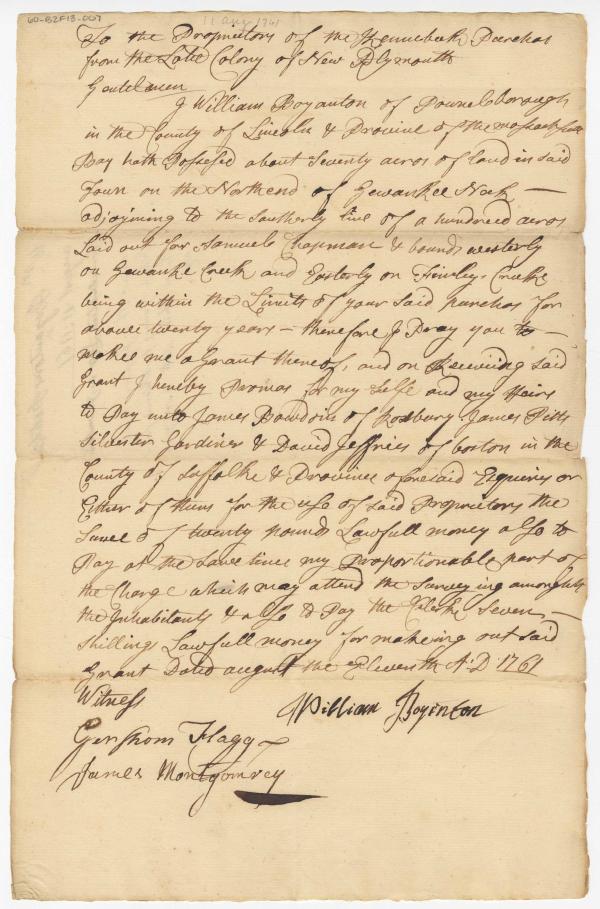 60-B2F13-007
11 aug 1761
To the Proprietors of the Kennebeck Purchas
from the Late Colony of New Plymouth
Gentelmen
I William Boyanton of Pownelsborough
in the County of Lincoln & Provine of the Massachsetts
Bay hath Possesed about Seventy acros of land in said
Town on the Northend of Jewankee Neck —
adjoyning to the Southerly line of a hundreed acros
Laid out for Samuel Chapman & bounds westerly
on Jewanke Creek and Easterly on Creeke
being within the Limits of your said purchas for
above twenty years — therefore I Pray you to —
makee me a Grant thereof, and on Receiving said
Grant I hereby Promas for my Selfe and my Hairs
to Pay unto James Bowdoin of Roxbury James Pitts
Silvester Gardiner & David Jeffries of boston in the
County of Suffolke & Province aforesaid Esquires or
Either of them for the use of said Proprietors the
Sume of twenty pounds Lawfull money also to
Pay at the Same time my Proportionable part of
the Charge which may attend the Surveying amongst
the Inhabitants & also to Pay the Seven —
shillings Lawfull money for makeing out said
Grant Dated august the Eleventh A:D 1761
Witness
William Boyinton
Gershom Flagg
James Montgomrey